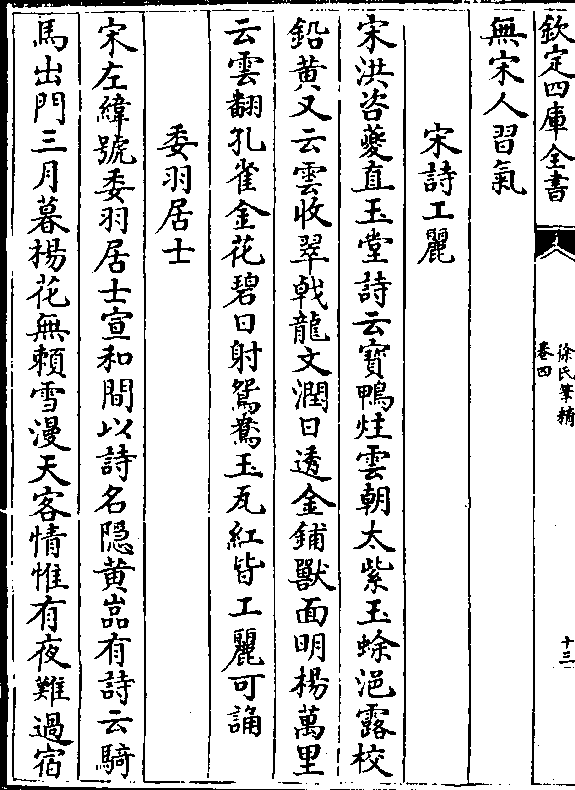 欽定四庫全書
徐氏筆精
卷四
十三
無宋人習氣
宋詩工麗
宋洪咨夔直玉堂詩云寶鴨炷雲朝太紫玉蜍浥露校
鉛黄又云雲收翠㦸龍文潤日透金鋪獸面明楊萬里
云雲翻孔雀金花碧日射鴛鴦玉瓦紅皆工麗可誦
委羽居士
宋左緯號委羽居士宣和間以詩名隐黄嵓有詩云騎
馬出門三月暮楊花無頼雪漫天客情惟有夜難過宿